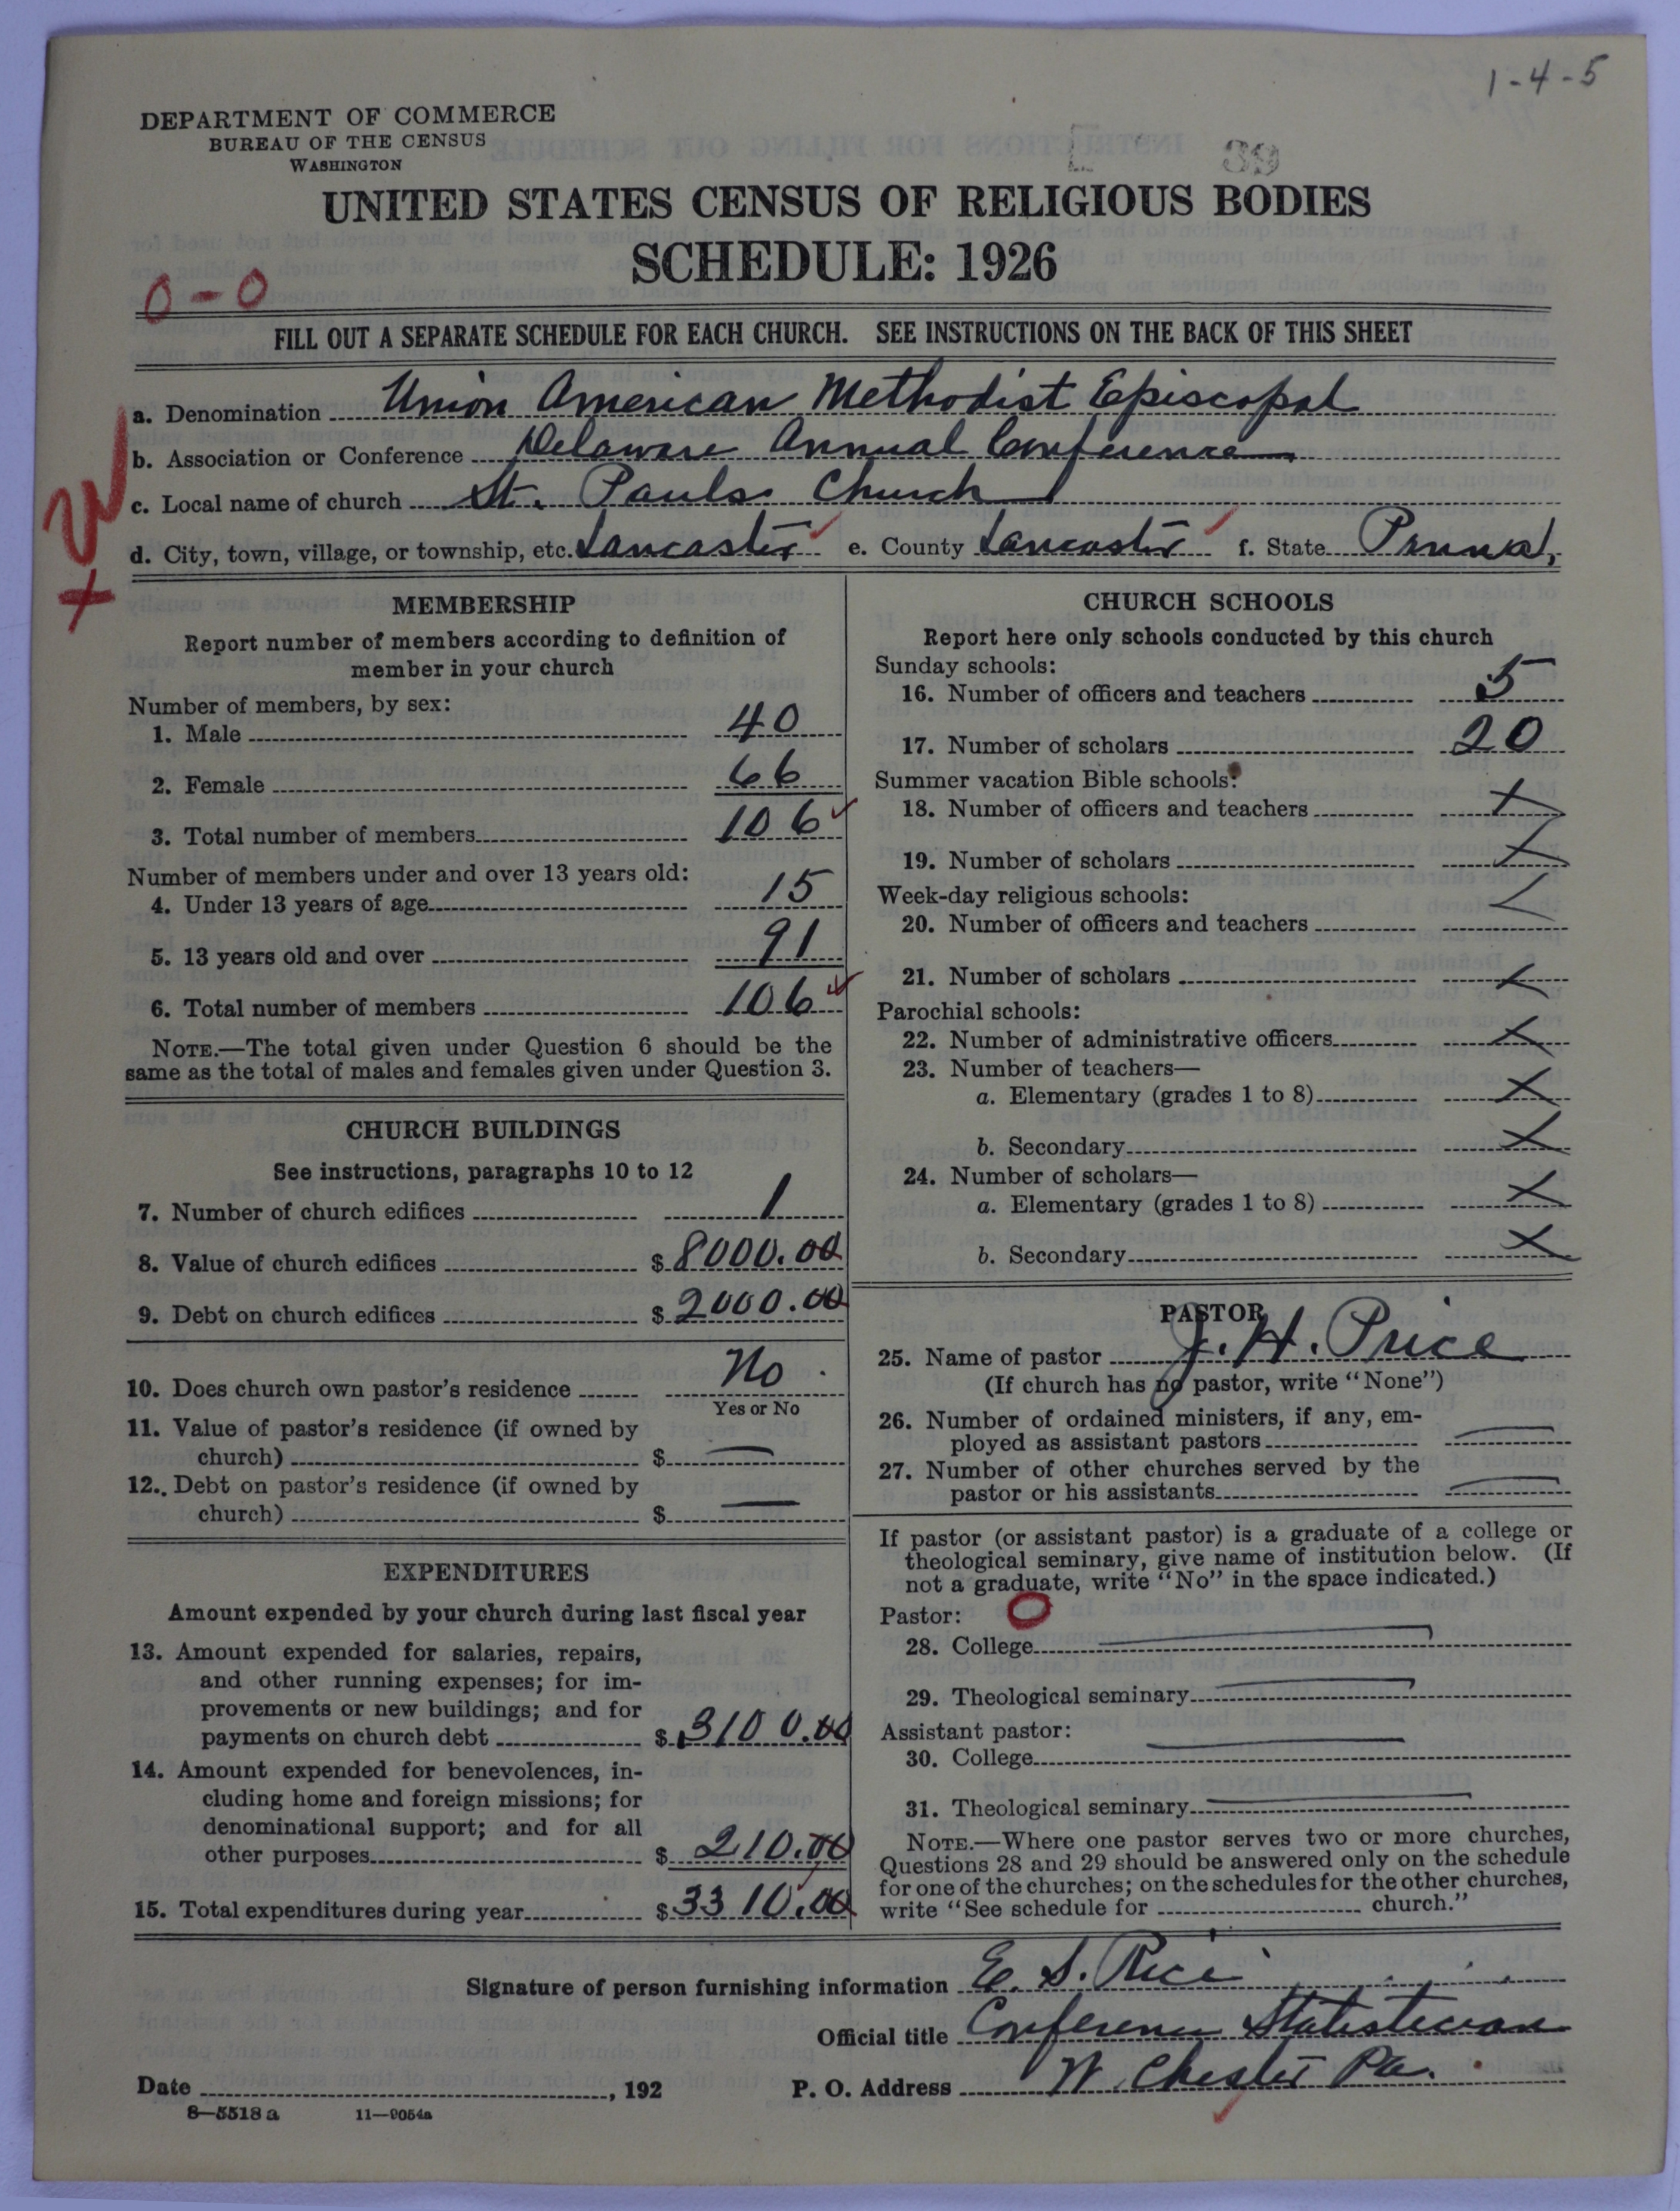 1-4-5
DEPARTMENT OF COMMERCE
BUREAU OF THE CENSUS
WASHINGTON
39
UNITED STATES CENSUS OF RELIGIOUS BODIES
SCHEDULE: 1926
0-0
FILL OUT A SEPARATE SCHEDULE FOR EACH CHURCH. SEE INSTRUCTIONS ON THE BACK OF THIS SHEET
a. Denomination Union American Methodist Episcopal
b. Association or Conference Delaware Annual Conference
c. Local name of church St. Pauls Church
d. City, town, village, or township, etc. Lancaster e. County Lancaster f. State Penna,
MEMBERSHIP
Report number of members according to definition of
member in your church
Number of members, by sex:
1. Male 40
2. Female 66
3. Total number of members 106
Number of members under and over 13 years old:
4. Under 13 years of age 15
5. 13 years old and over 91
6. Total number of members 106
NOTE.—The total given under Question 6 should be the
same as the total of males and females given under Question 3.
CHURCH BUILDINGS
See instructions, paragraphs 10 to 12
7. Number of church edifices 1
8. Value of church edifices $8000.00
9. Debt on church edifices $2000.00
10. Does church own pastor's residence No.
Yes or No
11. Value of pastor's residence (if owned by
church) $ —
12. Debt on pastor's residence (if owned by
church) $ —
EXPENDITURES
Amount expended by your church during last fiscal year
13. Amount expended for salaries, repairs,
and other running expenses; for im-
provements or new buildings; and for
payments on church debt $3100.00
14. Amount expended for benevolences, in-
cluding home and foreign missions; for
denominational support; and for all
other purposes $210.00
15. Total expenditures during year $3310.00
CHURCH SCHOOLS
Report here only schools conducted by this church
Sunday schools:
16. Number of officers and teachers 5
17. Number of scholars 20
Summer vacation Bible schools:
18. Number of officers and teachers X
19. Number of scholars X
Week-day religious schools:
20. Number of officers and teachers
21. Number of scholars X
Parochial schools:
22. Number of administrative officers X
23. Number of teachers—
a. Elementary (grades 1 to 8) X
b. Secondary X
24. Number of scholars—
a. Elementary (grades 1 to 8) X
b. Secondary X
PASTOR
25. Name of pastor J. H. Price
(If church has no pastor, write "None")
26. Number of ordained ministers, if any, em-
ployed as assistant pastors —
27. Number of other churches served by the
pastor or his assistants —
If pastor (or assistant pastor) is a graduate of a college or
theological seminary, give name of institution below. (If
not a graduate, write "No" in the space indicated.)
Pastor: O
28. College —
29. Theological seminary —
Assistant pastor:
30. College —
31. Theological seminary —
NOTE.—Where one pastor serves two or more churches,
Questions 28 and 29 should be answered only on the schedule
for one of the churches; on the schedules for the other churches,
write "See schedule for church."
Signature of person furnishing information E. S. Rice
Official title Conference Statistician
Date , 192 P. O. Address W. Chester Pa.
8—5518 a 11—9054a